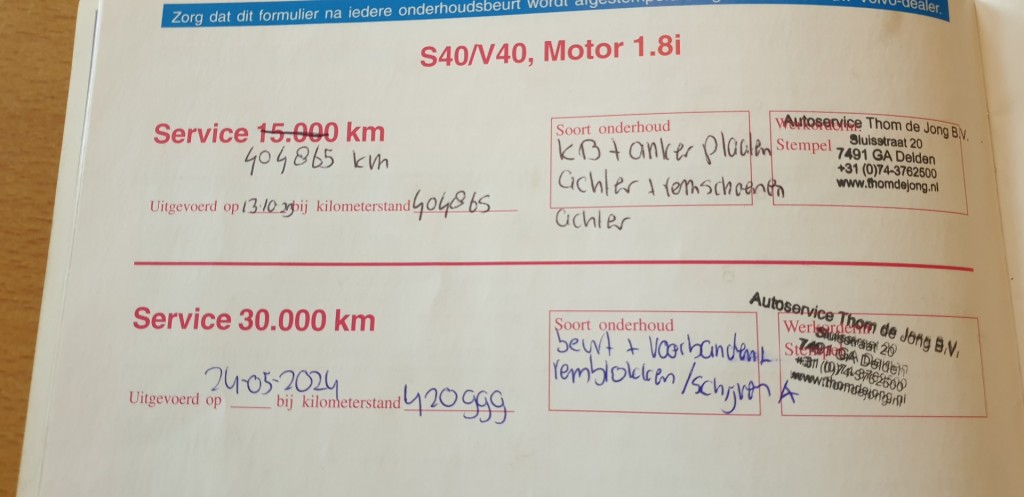 Zorg dat dit formulier na iedere onderhoudsbeurt wordt
Volvo-dealer.
S40/V40, Motor 1.8i
Service 15.000 km
404865 km
Uitgevoerd op 13-10 bij kilometerstand 404865
Soort onderhoud
KB + anker platen
achter + remschoenen
achter
Stempel
Autoservice Thom de Jong B.V.
Sluisstraat 20
7491 GA Delden
+31 (0)74-3762500
www.thomdejong.nl
Service 30.000 km
Uitgevoerd op 24-05-2024 bij kilometerstand 420999
Soort onderhoud
beurt + voorbanden +
remblokken/schijven A
Autoservice Thom de Jong B.V.
Sluisstraat 20
7491 GA Delden
+31 (0)74-3762500
www.thomdejong.nl